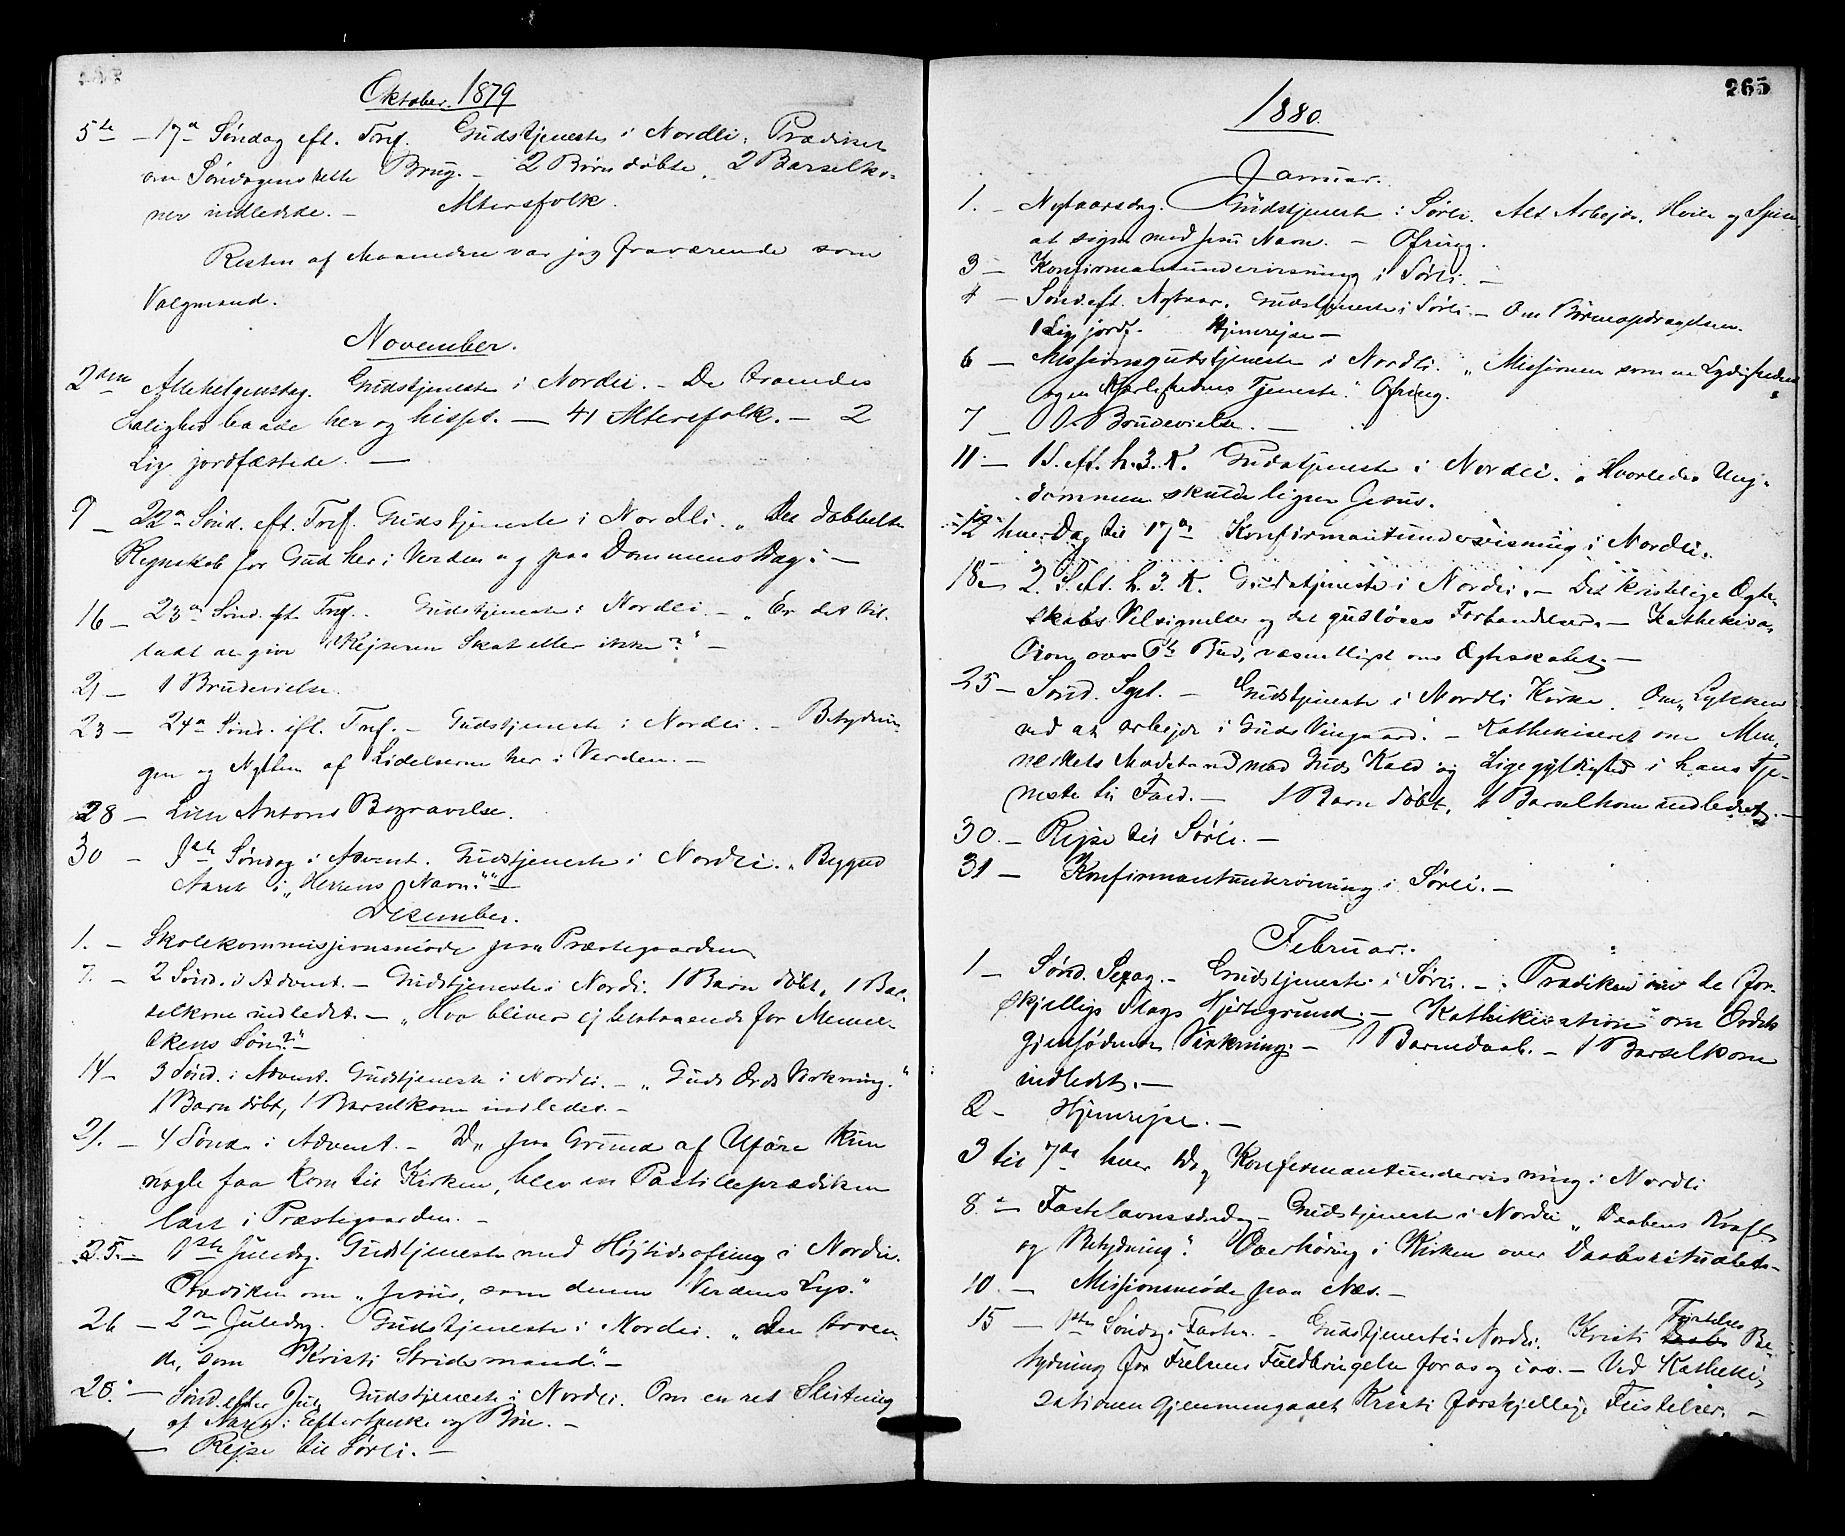 Oktober. 1879
5te – 17de Søndag eft. Tref. Gudstjeneste i Nordli. Prædiket
om Søndagens rette Brug. – 2 Børn døbte, 2 Barselko-
ner indledede. – Altersfolk.
Resten af Maaneden var jeg fraværende som
Valgmand.
November.
2den Allehelgensdag. Gudstjeneste i Nordli. – De troendes
Salighed baade her og hisset. – 41 Altersfolk. – 2
Lig jordfæstede. –
9 – 22de Sønd. eft. Tref. Gudstjeneste i Nordli. „Det dobbelte
Regnskab for Gud her i Verden og paa Dommens Dag". –
16 – 23de Sønd. eft. Tref. Gudstjeneste i Nordli. – „Er det til-
ladt at give Kejseren Skat eller ikke?" –
21 – 1 Brudevielse.
23 – 24de Sønd. eft. Tref. – Gudstjeneste i Nordli. – Betydnin-
gen og Nytten af Lidelserne her i Verden. –
28 – Liten Antons Begravelse.
30 – 1ste Søndag i Advent. Gudstjeneste i Nordli. „Begynd
Aaret i „Herrens Navn"" –
Desember.
1. – Skolekommissjonsmøde paa Præstegaarden
7. – 2 Sønd. i Advent. – Gudstjeneste i Nordli. 1 Barn døbt, 1 Bar-
selkone indledet. – „Hvo bliver ej bestaaende for Menne-
skens Søn?" –
14 – 3 Sønd. i Advent. Gudstjeneste i Nordli. – „Guds Ords Virkning."
1 Barn døbt, 1 Barselkone indledet. –
21. – 4 Sønd. i Advent. – Da paa Grund af Uføre kun
nogle faa kom til Kirken, blev en Postilleprædiken
læst i Præstegaarden. –
25. – 1ste Juledag. Gudstjeneste med Højtidsofring i Nordli.
Prædiken om „Jesus, som denne Verdens Lys."
26 – 2den Juledag. Gudstjeneste i Nordli. „Den troen-
de, som Kristi Stridsmand." –
28. – Sønd. efter Jul Gudstjeneste i Nordli. Om en ret Slutning
af Aaret i Eftertanke og Bøn. –
– Rejse til Sørli. –
265
1880.
Januar.
1. – Nytaarsdag. Gudstjeneste i Sørli. Alt Arbejde, Hvile og Spise
at signe med Jesu Navn. – Ofring.
3 – Konfirmantundervisning i Sørli. –
4 – Sønd. eft. Nytaar. Gudstjeneste i Sørli. – Om Børneopdragelsen.
1 Lig jordf. Hjemrejse –
6 – Missionsgudstjeneste i Nordli. „Missionen som en Lydighedens
og en Kjærlighedens Tjeneste." Ofring.
7 – Brudevielse. –
11. – 1 S. eft. h. 3. K. Gudstjeneste i Nordli. „Hvorledes Ung-
dommen skulde ligne Jesus.
12 hver Dag til 17de Konfirmantundervisning i Nordli.
18 – 2. S. eft. h. 3. K. Gudstjeneste i Nordli. – Det kristelige Ægte-
skabs Velsignelse og det gudløses Forbandelse. – Kathekisa-
tion over 6te Bud, væsentligst om Ægteskabet. –
25 – Sønd. Sept. – Gudstjeneste i Nordli Kirke. Om „Lykken
ved at arbejde i Guds Vingaard". – Kathekiseret om Men-
neskets Modstand mod Guds Kald og Ligegyldighed i hans Tje-
neste til Fald. – 1 Barn døbt, 1 Barselkone indledet. –
30. – Rejse til Sørli. –
31 – Konfirmantundervisning i Sørli. –
Februar.
1 – Sønd. Sexag. – Gudstjeneste i Sørli. – Prædiken over de for-
skjellige Slags Hjertegrund. – Kathekisation om Ordets
gjenfødende Virkning. – 1 Barnedaab. – 1 Barselkone
indledet. –
2 – Hjemrejse. –
3 til 7de hver Dag Konfirmantundervisning i Nordli
8 – Fastelavnssøndag – Gudstjeneste i Nordli „Daabens Kraft
og Betydning". Overhøring i Kirken over Daabsritualet. –
10. – Missionsmøde paa Næs. –
15 – 1ste Søndag i Fasten. – Gudstjeneste i Nordli. Kristi Fristelses Be-
tydning for Frelsens Fuldbringelse for os og i os. – Ved Katheki-
sationen gjennemgaaet Kristi forskjellige Fristelser. –